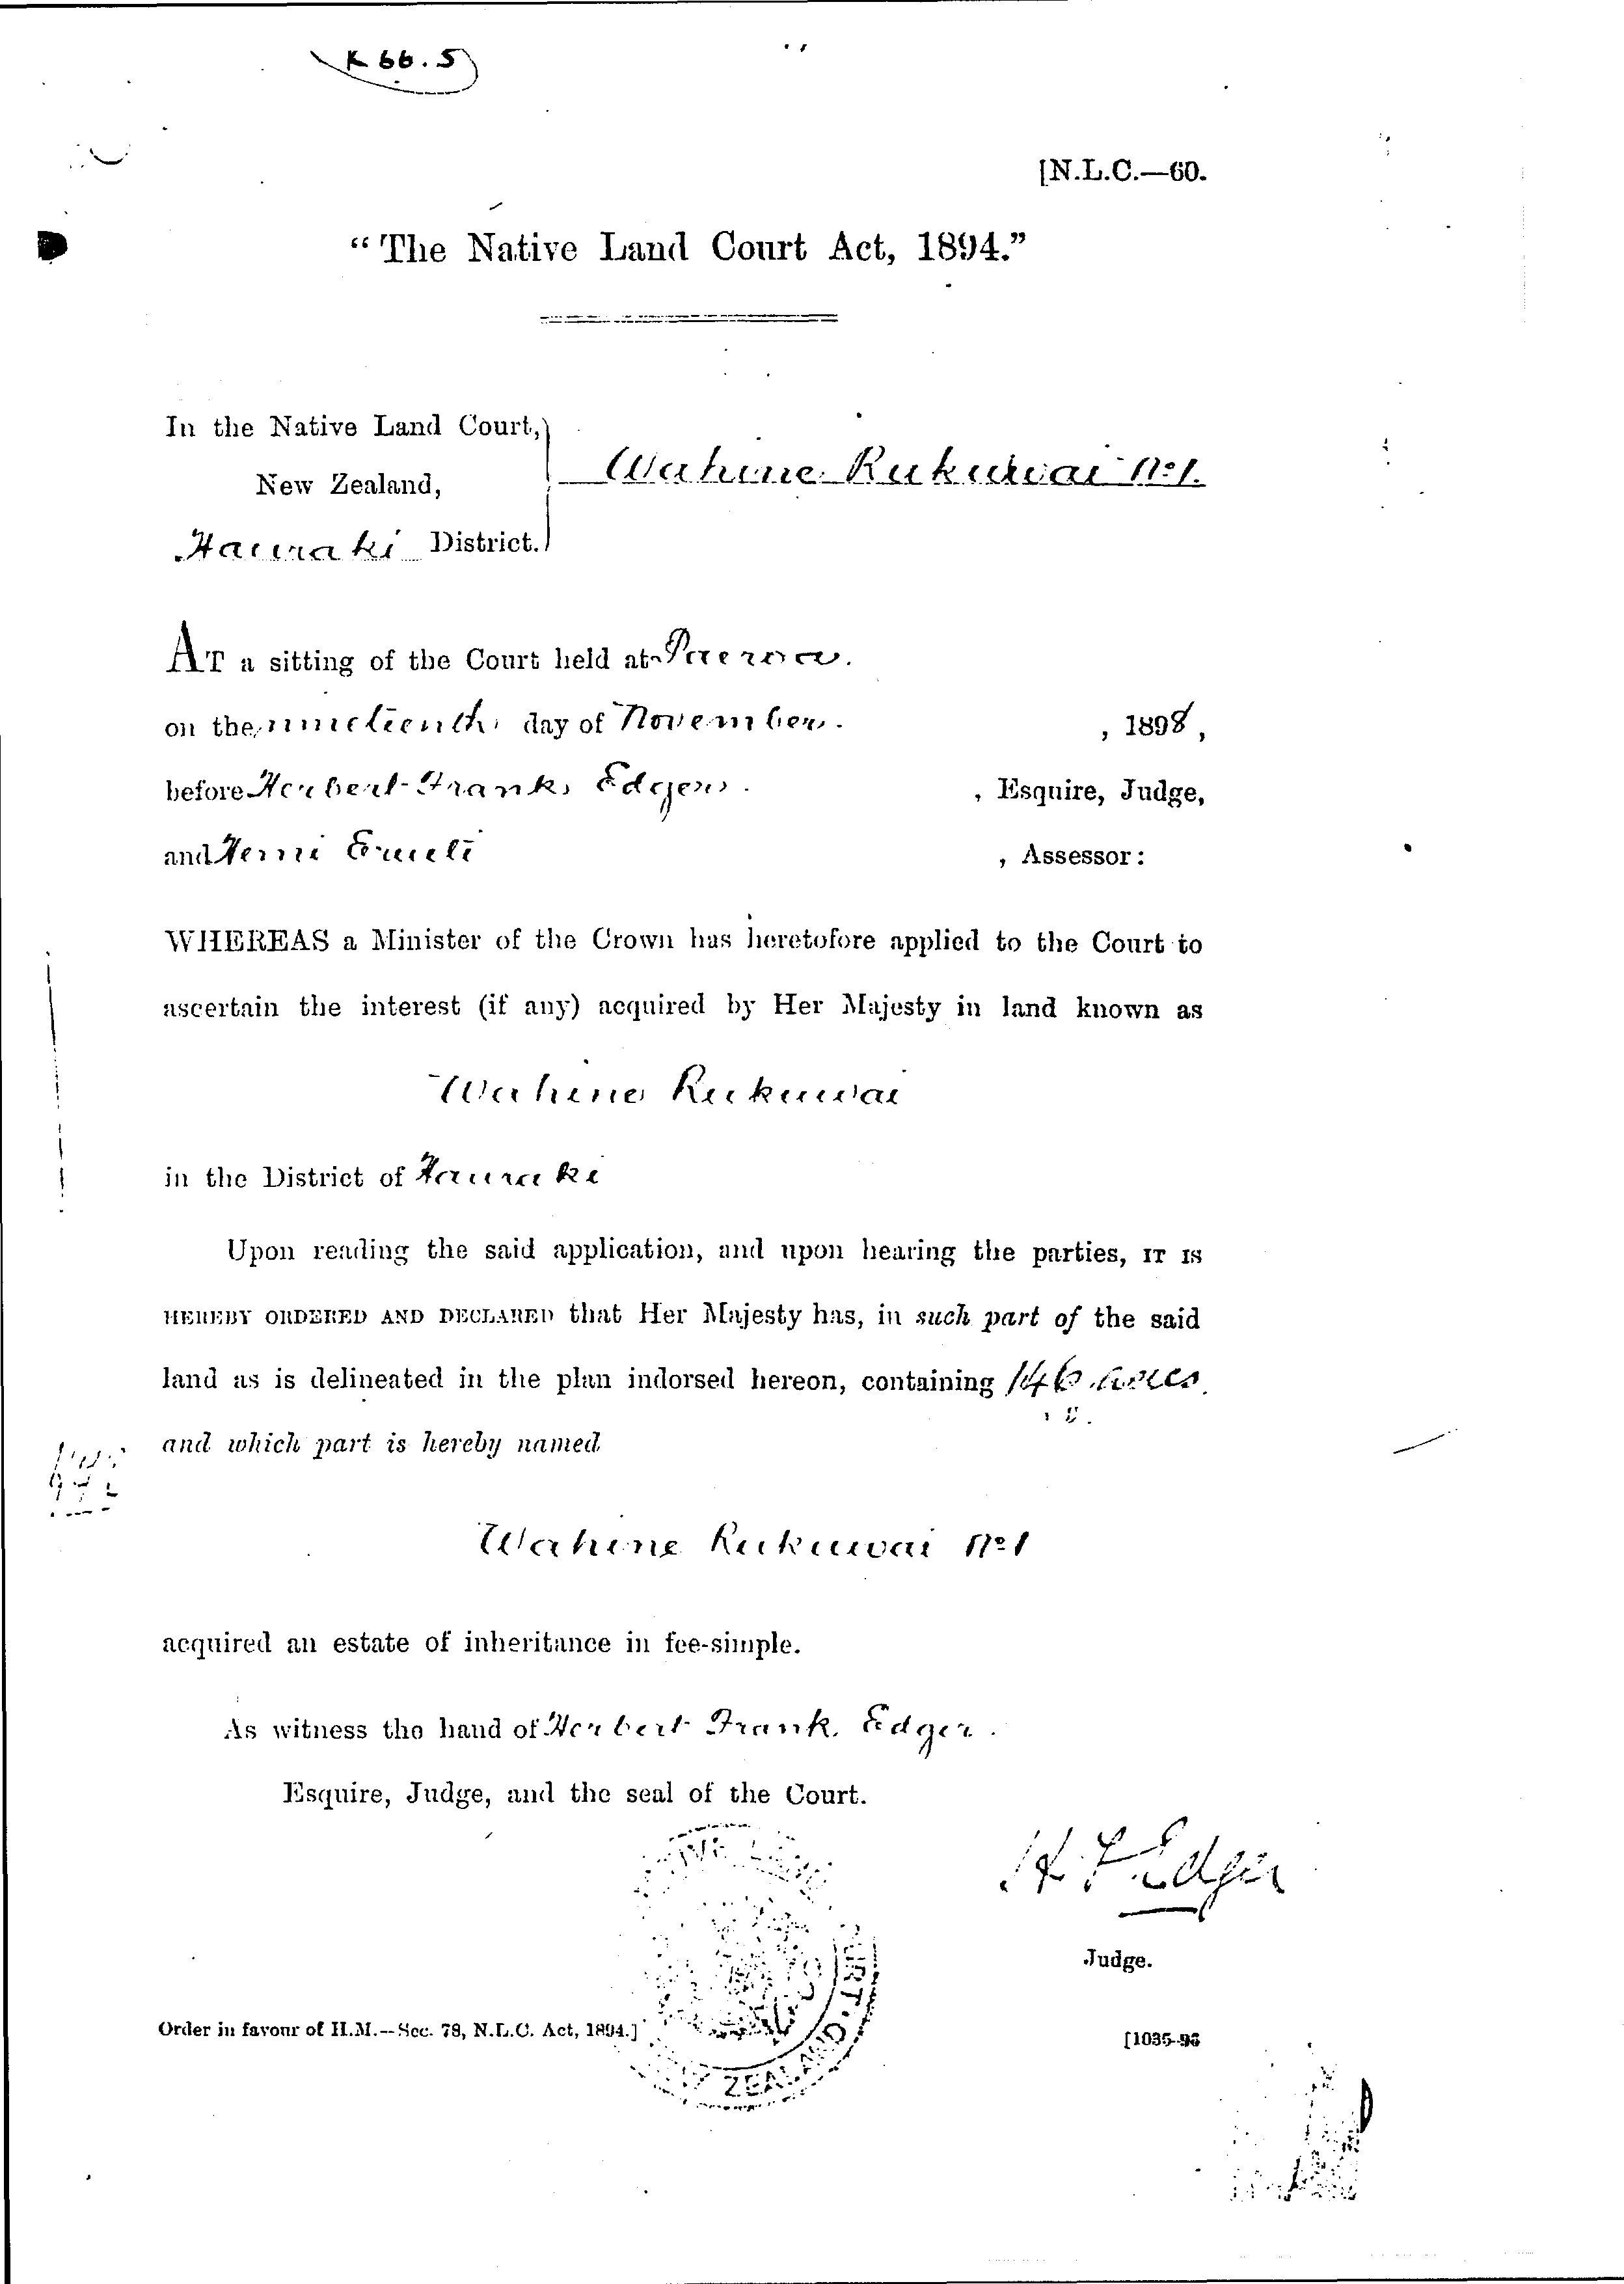 K 66.5
[N.L.C.—60.
“The Native Land Court Act, 1894.”
In the Native Land Court,
New Zealand,
Wahine Rukuwai No 1.
Hauraki District.
AT a sitting of the Court held at Paeroa.
on the nineteenth day of November. , 1898,
before Herbert Frank Edger. , Esquire, Judge,
and Hemi Erueti , Assessor:
WHEREAS a Minister of the Crown has heretofore applied to the Court to
ascertain the interest (if any) acquired by Her Majesty in land known as
Wahine Rukuwai
in the District of Hauraki
Upon reading the said application, and upon hearing the parties, IT IS
HEREBY ORDERED AND DECLARED that Her Majesty has, in such part of the said
land as is delineated in the plan indorsed hereon, containing 146 acres
and which part is hereby named
Wahine Rukuwai No 1
acquired an estate of inheritance in fee-simple.
As witness the hand of Herbert Frank Edger.
Esquire, Judge, and the seal of the Court.
H F Edger
Judge.
Order in favour of H.M.—Sec. 78, N.L.C. Act, 1894.]
[1035-96
ZEALAND